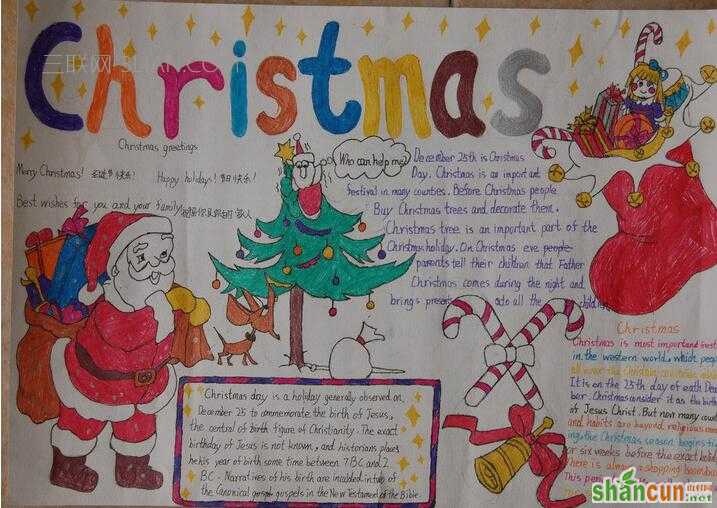 Christmas
三联网 3LIAN.COM
Christmas greetings
Merry Christmas! 圣诞节快乐! Happy holidays! 节日快乐!
Best wishes for you and your family!
Who can help me?
December 25th is Christmas
Day. Christmas is an important
festival in many counties. Before Christmas people
Buy Christmas trees and decorate them.
Christmas tree is an important part of the
Christmas holiday. On Christmas eve people
parents tell their children that Father
Christmas comes during the night and
brings to all the
Christmas day is a holiday generally observed on
December 25 to ommemorate the birth of Jesus,
the central of birth figure of Christianity. The exact
birthday of Jesus is not known, and historians places
he his year of birth some time between 7 BC and 2
BC. Narratives of his birth are included in two of
the Canonical gospels in the New Testament of the Bible.
Christmas
Christmas is most important fest
in the western world. which peop
all over the
It is on the 25th day of eath Dec
ber. Christmas onsider it as the birth
of Jesus Christ. But now many coun
and habits are beyond religious
ing, the Christmas season begins
or six weeks before the exact holid
There is always a shopping boom
This period
shancun.net